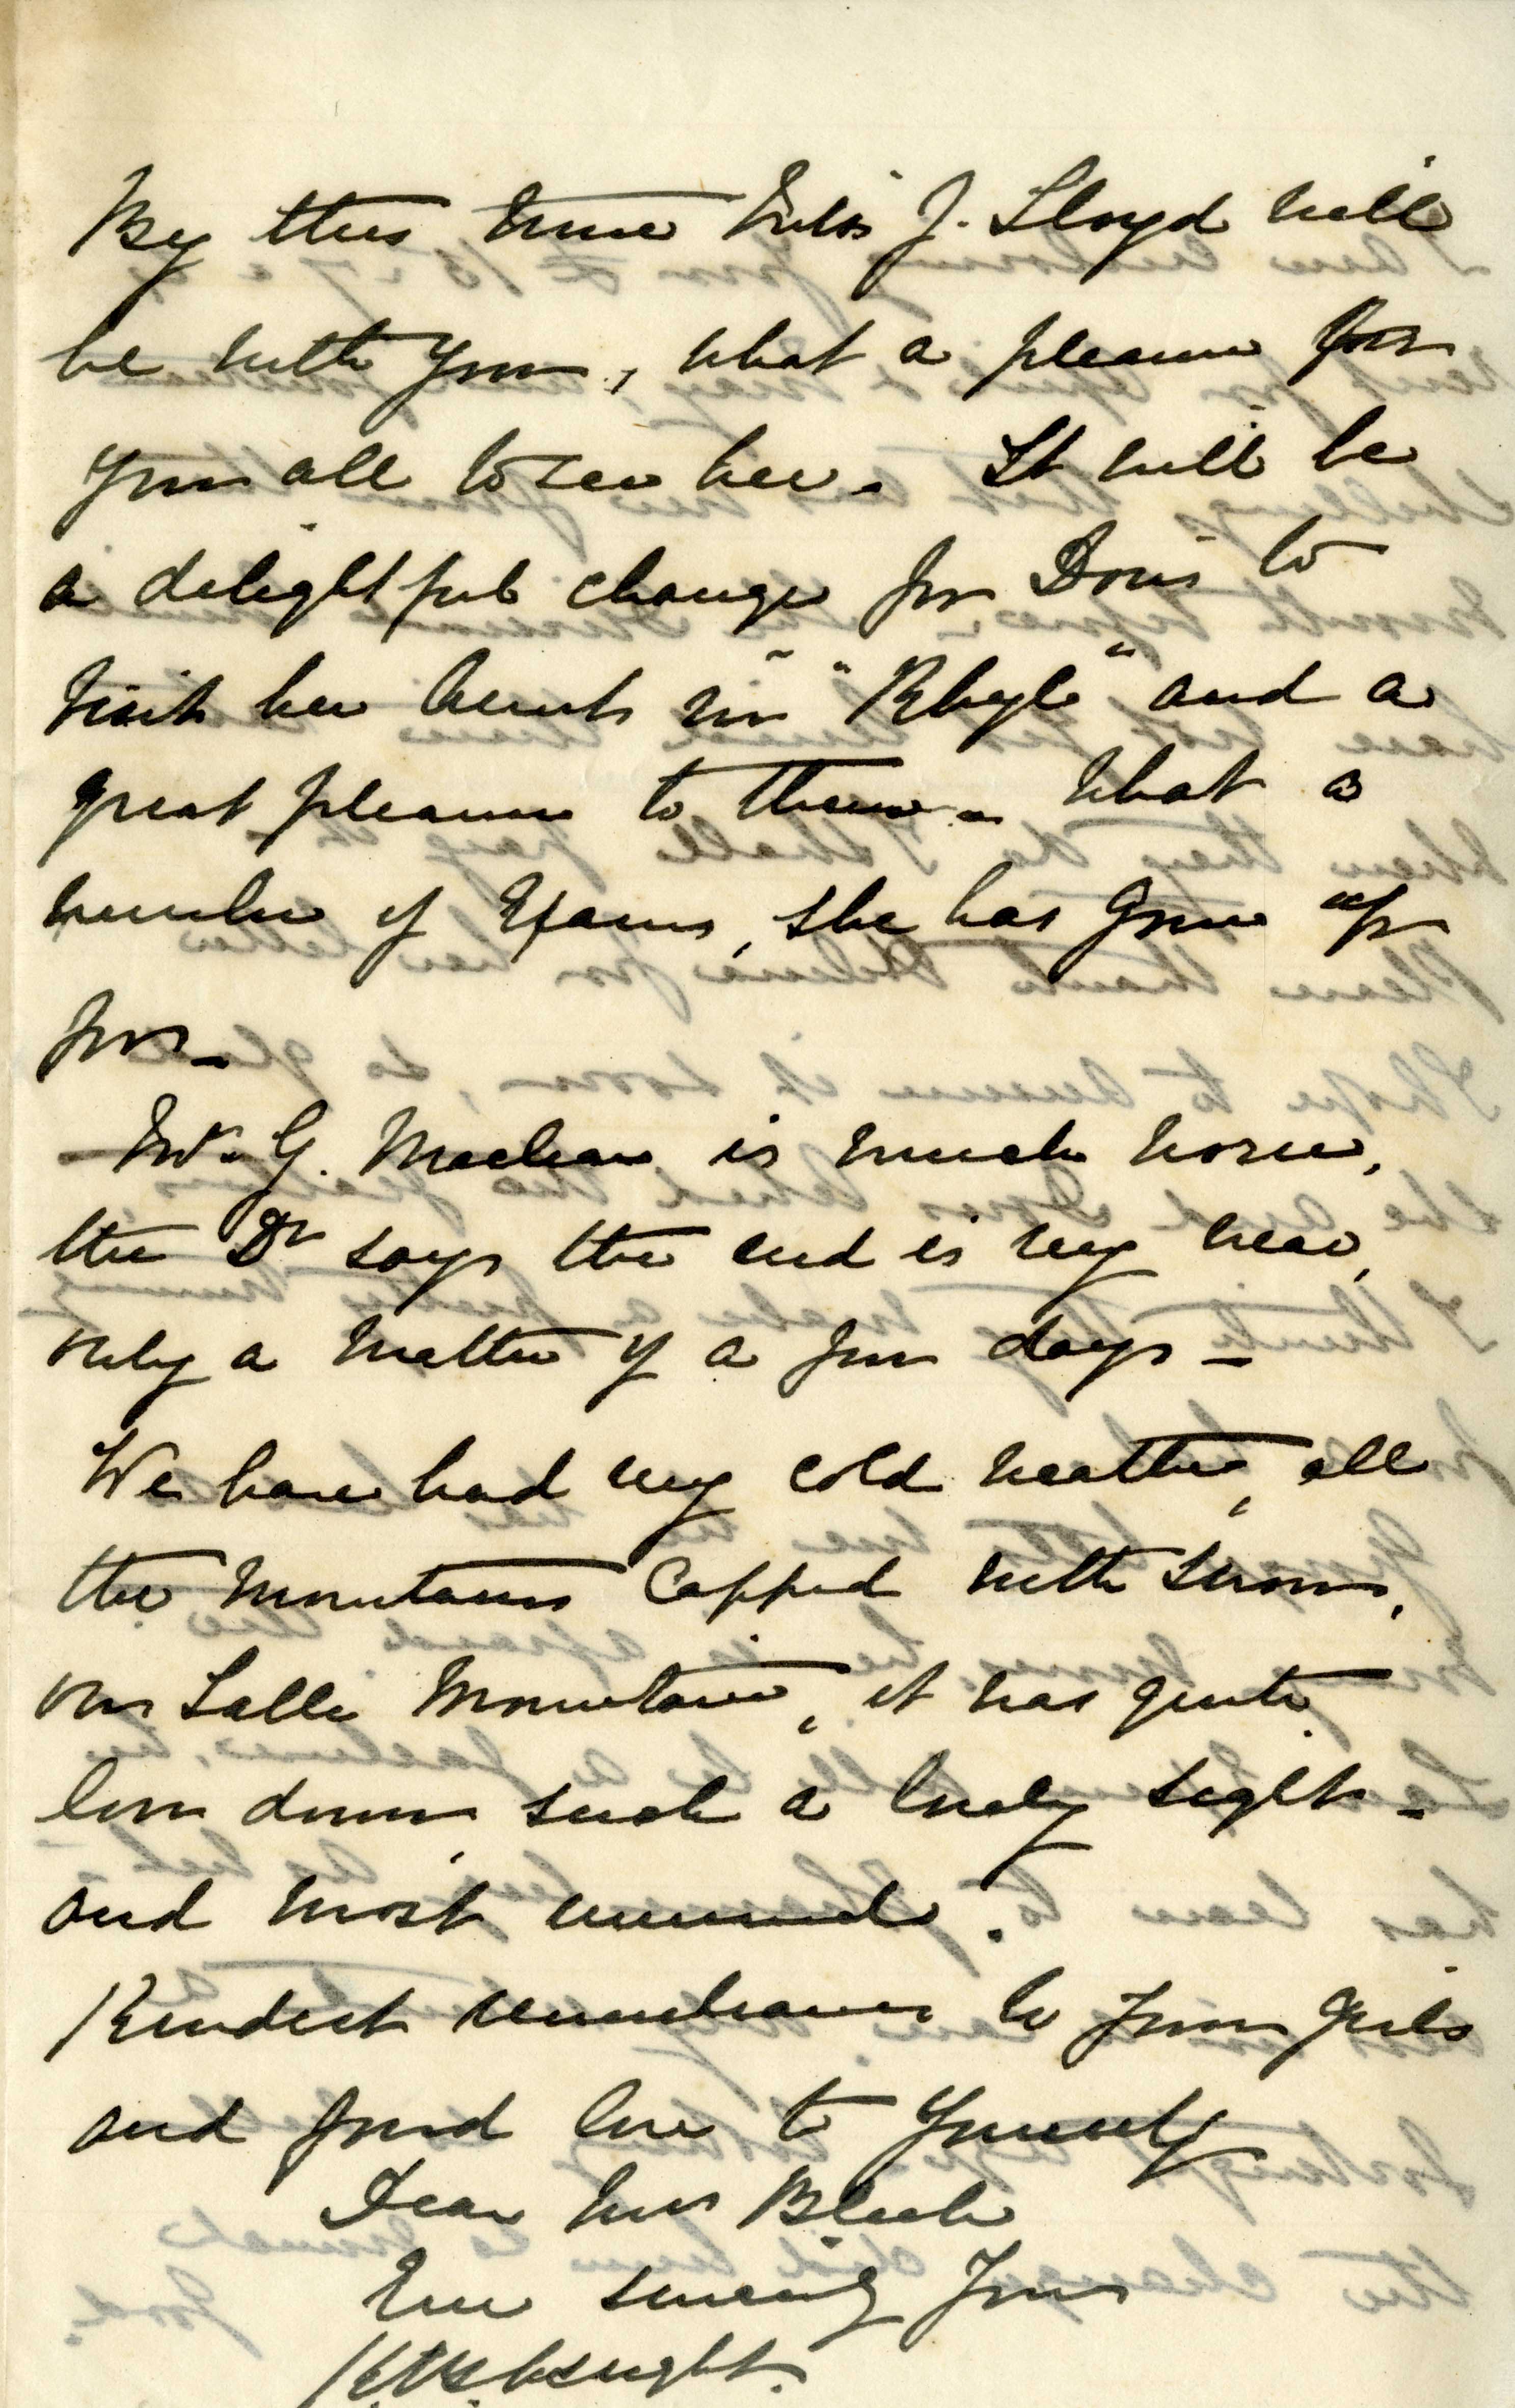 By this time Miss J. Lloyd will
be with you, what a pleasure for
you all to see her. It will be
a delightful change for Doris to
visit her Aunts in "Rhyl" and a
great pleasure to them - What a
number of Exams, she has gone up
for -
Mr. G. Maclear is much worse,
the Dr says the end is very near,
only a matter of a few days -
We have had very cold weather, all
the mountains capped with snow,
on Table Mountain, it was quite
low down such a lovely sight -
and most unusual.
Kindest remembrances to your girls
and fond love to yourself
Dear Mrs Bleek
Ever sincerely Yours